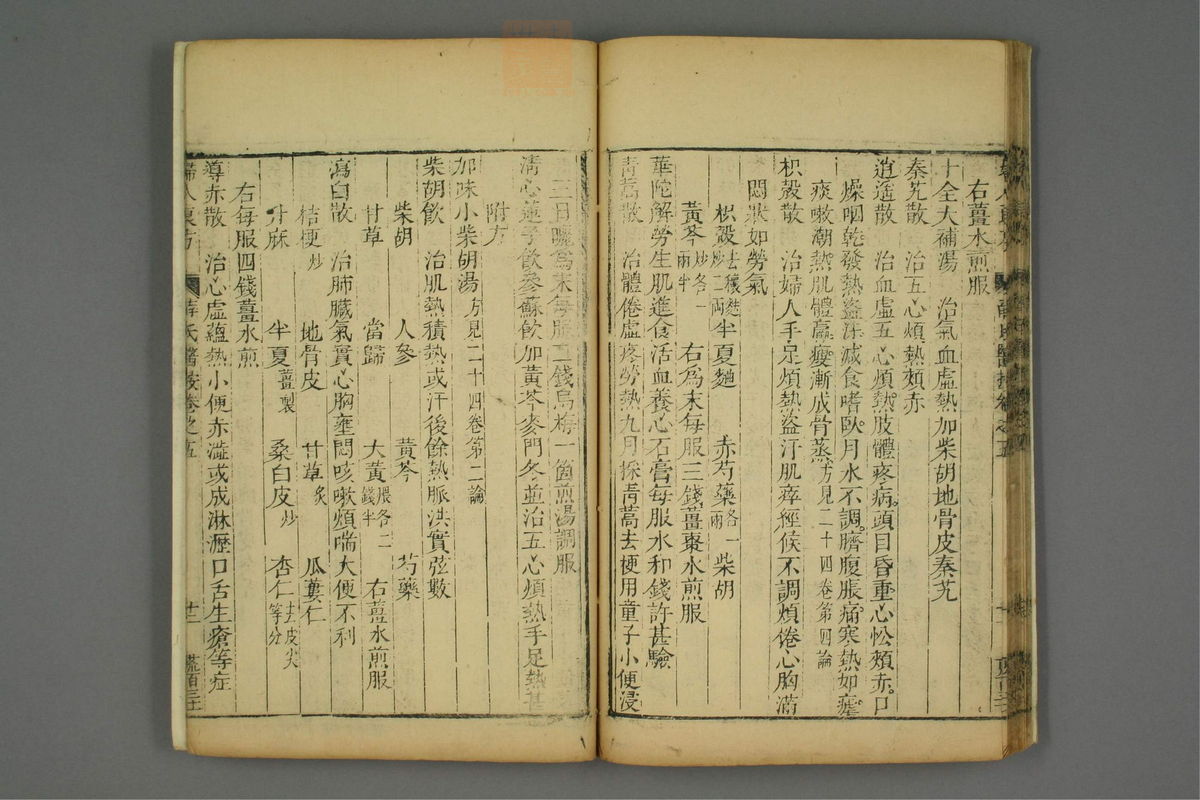 右薑水煎服
十全大補湯 治氣血虛熱加柴胡地骨皮秦艽
秦艽散 治五心煩熱頰赤
逍遙散 治血虛五心煩熱肢體疼痛頭目昏重心忪頰赤口
燥咽乾發熱盜汗減食嗜臥月水不調臍腹脹痛寒熱如瘧
痰嗽潮熱肌體羸瘦漸成骨蒸方見二十四卷第四論
枳殼散 治婦人手足煩熱盜汗肌瘁經候不調煩倦心胸滿
悶狀如勞氣
枳殼去穰麩炒二兩 半夏麯 赤芍藥各一兩 柴胡
黃芩炒各一兩半 右為末每服三錢薑棗水煎服
華陀解勞生肌進食活血養心石膏每服水和錢許甚驗
青蒿散 治體倦虛疼勞熱九月採青蒿去梗用童子小便浸
三日曬為末每服二錢烏梅一箇煎湯調服
清心蓮子飲參蘇飲加黃芩麥門冬並治五心煩熱手足熱甚
附方
加味小柴胡湯方見二十四卷第二論
柴胡飲 治肌熱積熱或汗後餘熱脈洪實弦數
柴胡 人參 黃芩 芍藥
甘草 當歸 大黃煨各二錢半 右薑水煎服
瀉白散 治肺臟氣實心胸壅悶咳嗽煩喘大便不利
桔梗炒 地骨皮 甘草炙 瓜蔞仁
升麻 半夏薑製 桑白皮炒 杏仁去皮尖等分
右每服四錢薑水煎
導赤散 治心虛蘊熱小便赤澁或成淋瀝口舌生瘡等症
婦人良方 薛氏醫按卷之五 十二